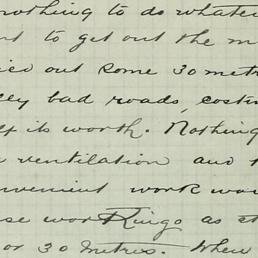 nothing to do whatev
to get out the m
ied out some 30 metr
ey bad roads, cost
f its worth. Nothing
ventilation and
venient work wou
se worKings as st
or 30 metres. When